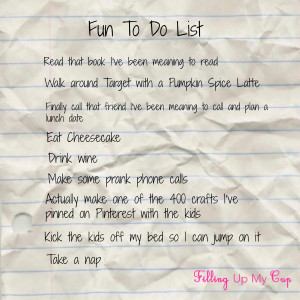 Fun To Do List
Read that book I've been meaning to read
Walk around Target with a Pumpkin Spice Latte
Finally call that friend I've been meaning to call and plan a
lunch date
Eat Cheesecake
Drink wine
Make some prank phone calls
Actually make one of the 400 crafts I've
pinned on Pinterest with the kids
Kick the kids off my bed so I can jump on it
Take a nap
Filling Up My Cup